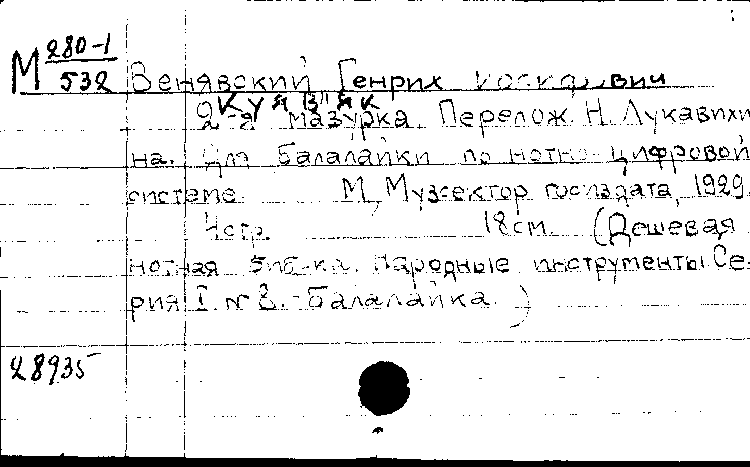 М 280-1
532
Венявский Генрих
КУЯВЯК
2-я мазурка. Перелож. Н. Лукавихи
на. Для балалайки по нотно-цифровой
системе. М, Музсектор госиздата, 1929.
4стр. 18см. (Дешевая
нотная биб-ка. Народные инструменты. Се-
рия I. № 8. - Балалайка.)
28935